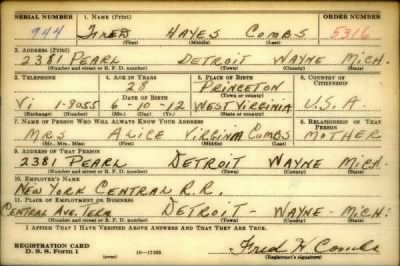 SERIAL NUMBER 1. NAME (Print) ORDER NUMBER
944 FRED HAYES COMBS 5316
(First) (Middle) (Last)
2. ADDRESS (Print)
2381 PEARL DETROIT WAYNE MICH.
(Number and street or R. F. D. number) (Town) (County) (State)
3. TELEPHONE 4. AGE IN YEARS 5. PLACE OF BIRTH 6. COUNTRY OF CITIZENSHIP
28 PRINCETON
DATE OF BIRTH (Town or county)
Vi 1-8055 6-10-12 WEST VIRGINIA U.S.A.
(Exchange) (Number) (Mo.) (Day) (Yr.) (State or country)
7. NAME OF PERSON WHO WILL ALWAYS KNOW YOUR ADDRESS 8. RELATIONSHIP OF THAT PERSON
MRS ALICE VIRGINIA COMBS MOTHER
(Mr., Mrs., Miss) (First) (Middle) (Last)
9. ADDRESS OF THAT PERSON
2381 PEARL DETROIT WAYNE MICH
(Number and street or R. F. D. number) (Town) (County) (State)
10. EMPLOYER'S NAME
NEW YORK CENTRAL R.R.
11. PLACE OF EMPLOYMENT OR BUSINESS
CENTRAL AVE. TERM. DETROIT - WAYNE - MICH.
(Number and street or R. F. D. number) (Town) (County) (State)
I AFFIRM THAT I HAVE VERIFIED ABOVE ANSWERS AND THAT THEY ARE TRUE.
REGISTRATION CARD Fred H Combs
D. S. S. Form 1 (over) 16-17105 (Registrant's signature)